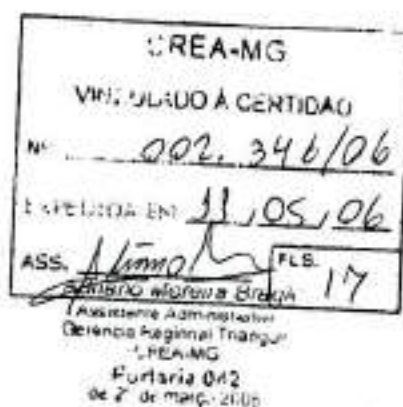 CREA-MG
VINCULADO À CERTIDÃO
Nº 002.346/06
EXPEDIDA EM 11/05/06
ASS.
FLS. 17
Adriano Moreira Braga
Assistente Administrativo
Gerência Regional Triângulo
CREA-MG
Portaria 042
de 2 de março 2006